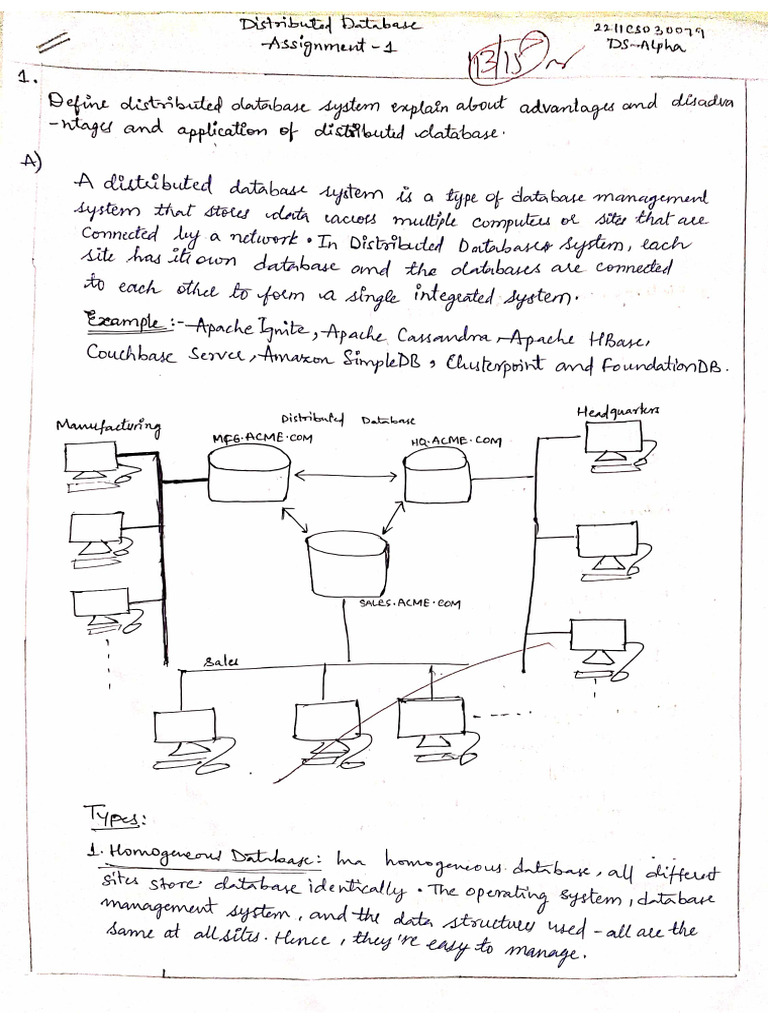 Distributed Database
-Assignment-1
2211CS030079
DS-Alpha
13/15
1.
Define distributed database system explain about advantages and disadva
-ntages and application of distributed database.
A)
A distributed database system is a type of database management
system that stores data across multiple computers or sites that are
connected by a network. In Distributed Database system, each
site has its own database and the databases are connected
to each other to form a single integrated system.
Example :- Apache Ignite, Apache Cassandra, Apache HBase,
Couchbase Server, Amazon SimpleDB, Clusterpoint and FoundationDB.
Manufacturing
Distributed Database
Headquarters
MFG.ACME.COM
HQ.ACME.COM
SALES.ACME.COM
Sales
Types:
1. Homogeneous Database: In a homogeneous database, all different
sites store database identically. The operating system, database
management system, and the data structures used - all are the
same at all sites. Hence, they're easy to manage.